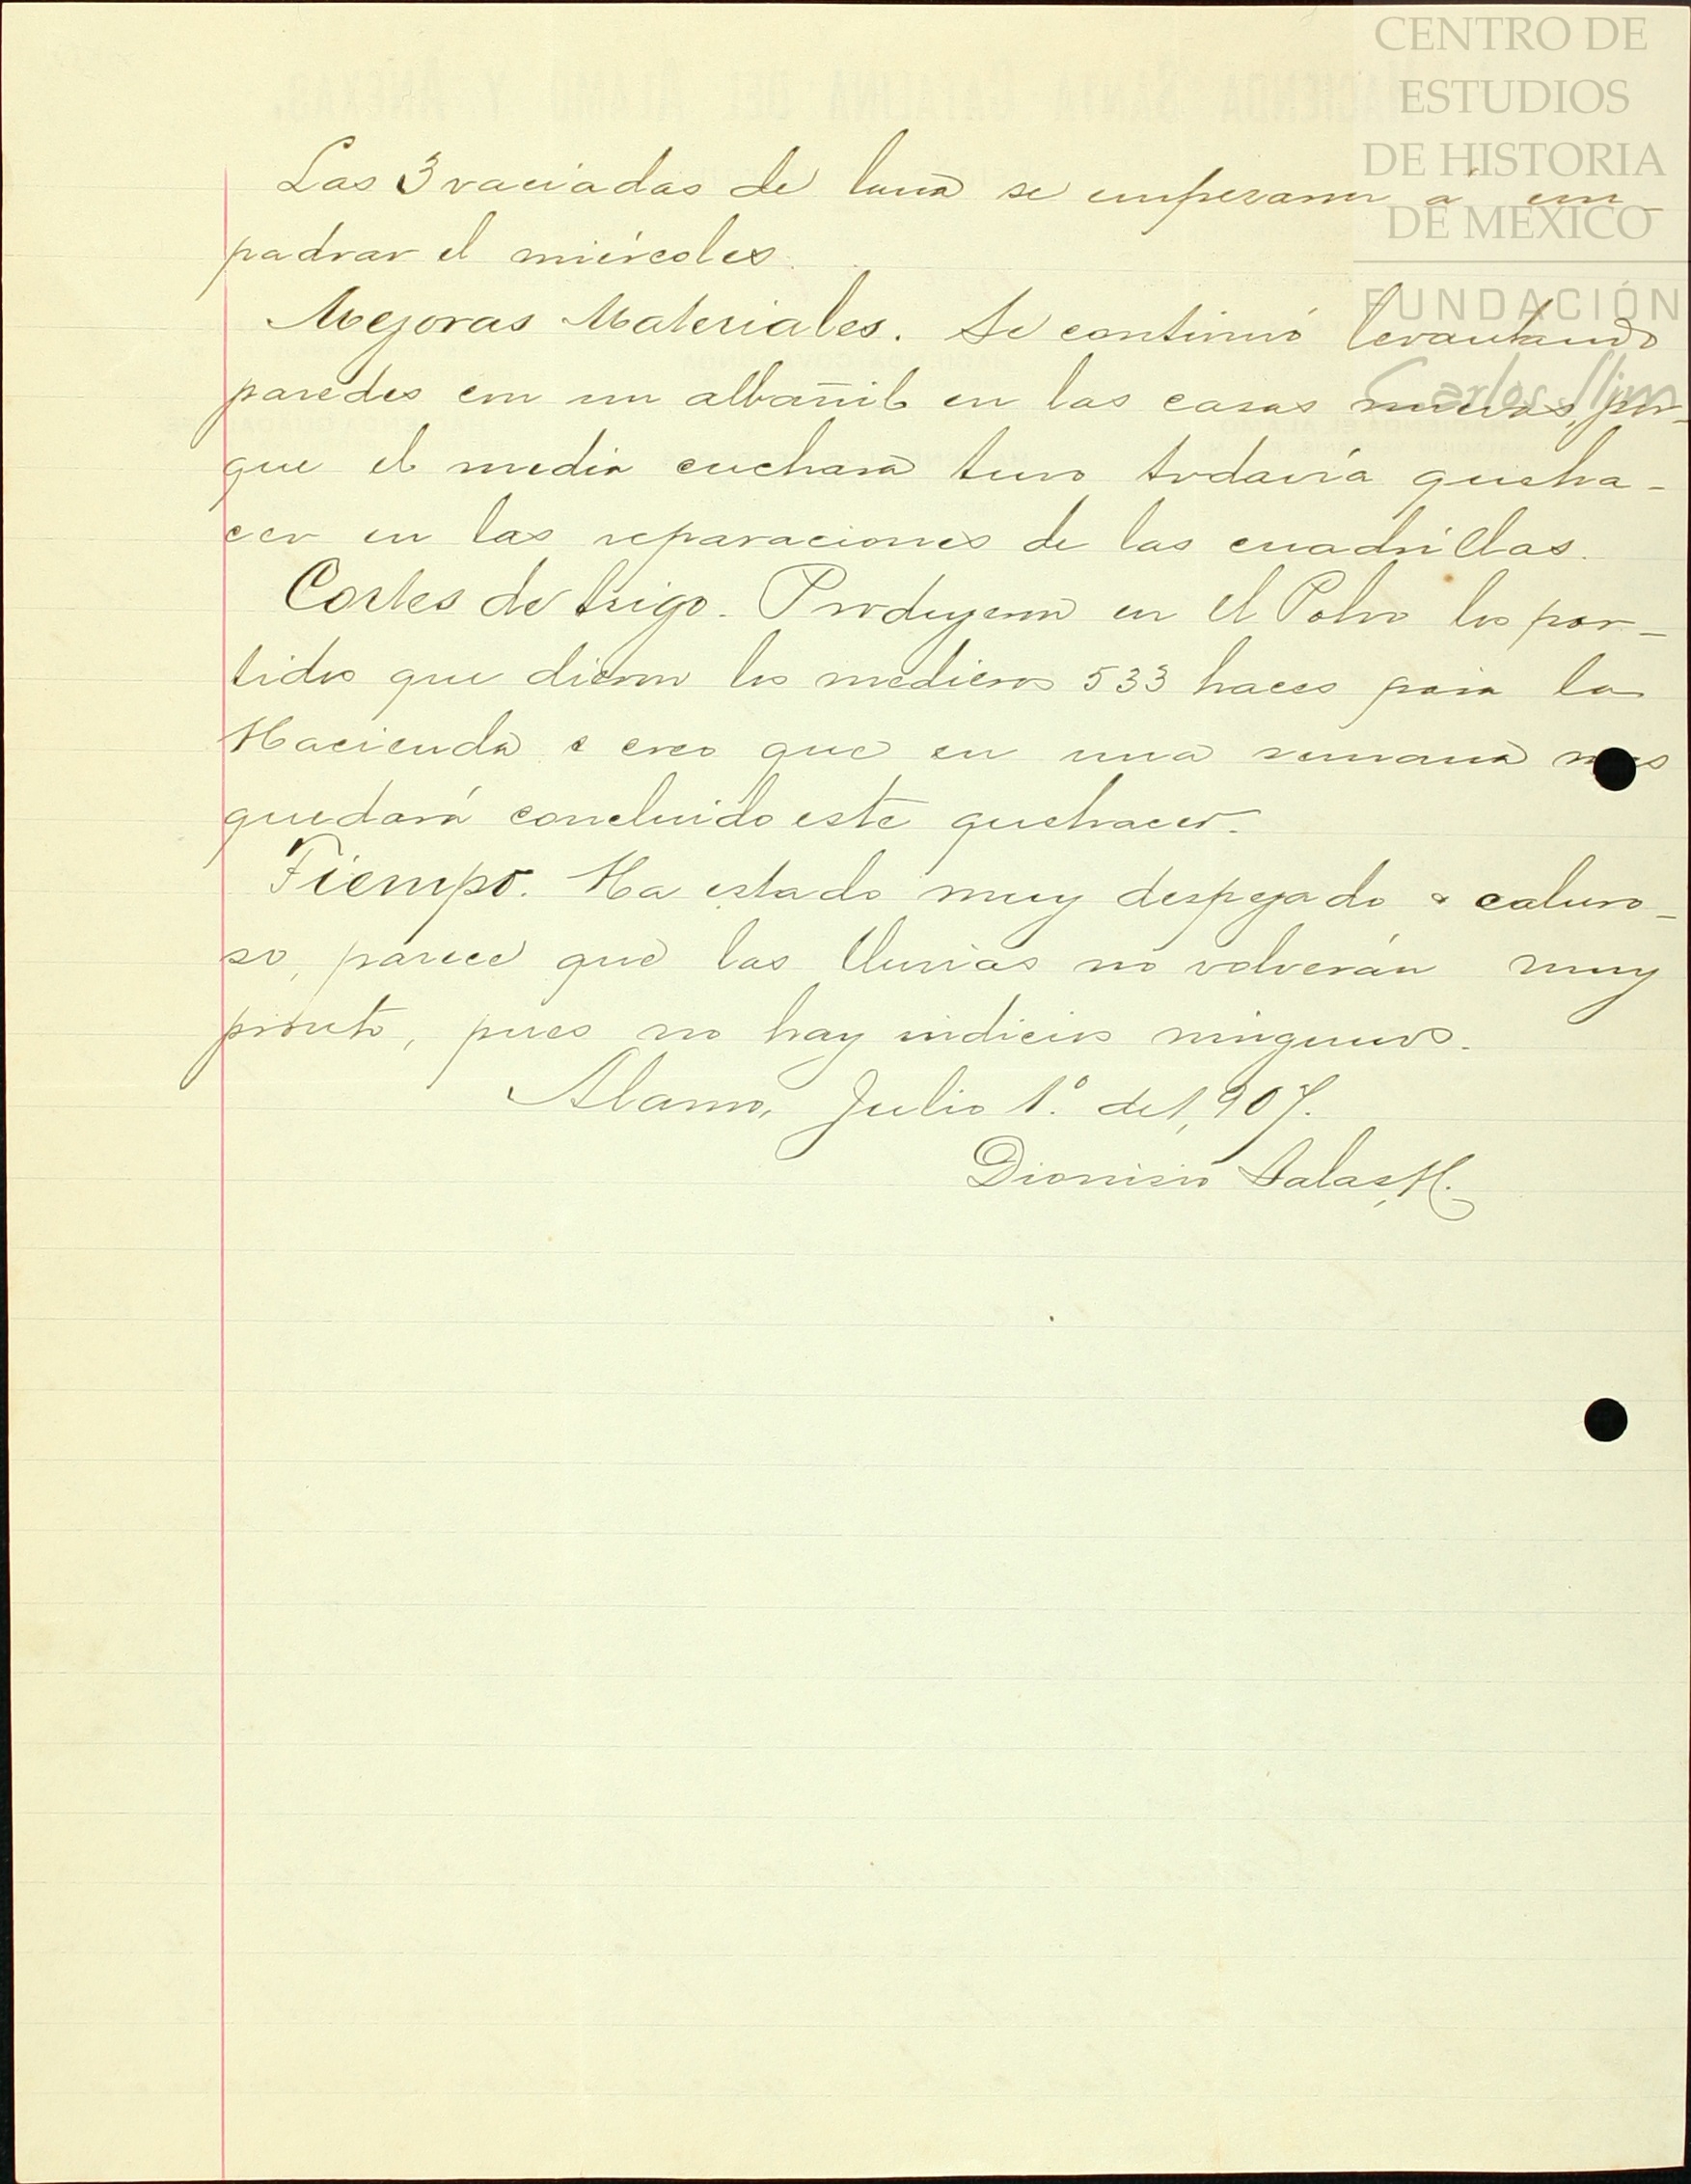 CENTRO DE
ESTUDIOS
DE HISTORIA
DE MEXICO
FUNDACIÓN
Carlos Slim
Las 3 vaciadas de luna se empezaron á em-
padrar el miércoles.
Mejoras Materiales. Se continuó levantando
paredes con un albañil en las casas nuevas, por-
que el media cuchara tuvo todavía queha-
cer en las reparaciones de las cuadrillas.
Cortes de trigo. Produjeron en el Polvo los par-
tidos que dieron los medieros 533 haces para la
Hacienda & creo que en una semana mas
quedará concluido este quehacer.
Tiempo. Ha estado muy despejado & caluro-
so, parece que las lluvias no volverán muy
pronto, pues no hay indicios ningunos.
Alamo, Julio 1º. de 1,907.
Dionisio Salas H.